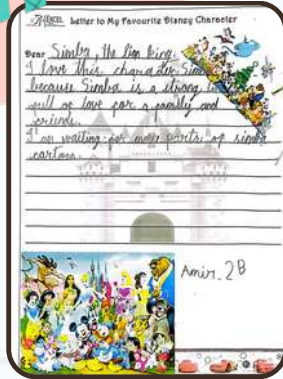 EXCEL Letter to My Favourite Disney Character
Dear Simba, the lion king.
I love this character Sim
because Simba is a strong
will or love for a family and
friends.
I am waiting for more parts of simba
cartoon.
Amir. 2B